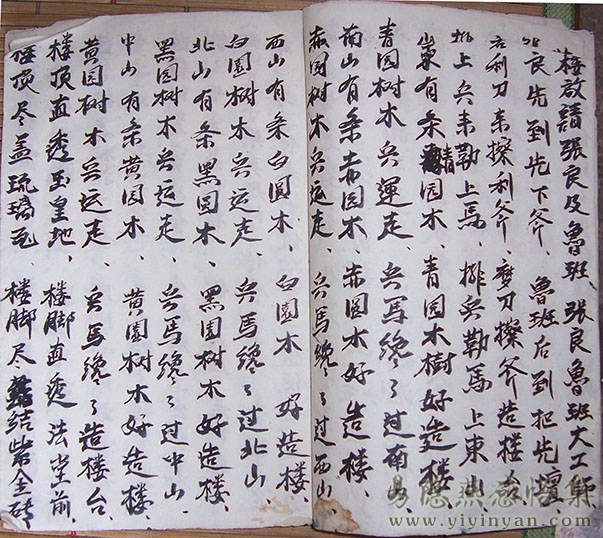 楼启請張良及魯班、張良魯班大工師、
張良先到先下斧、魯班后到把先壇、
左利刀来擦利斧、 刀擦斧造楼台
排上兵来勒上馬、排兵勒馬上東山
東有条青园木、青园木樹好造楼、
青园树木兵運走、兵馬纔了过南山、
南山有条赤园木、赤园木好造楼、
赤园树木兵运走、兵馬纔了过西山、
西山有条白圆木、白园木好造楼、
白园树木兵运走、兵馬纔了过北山、
北山有条黑园木、黑园树木好造楼、
黑园树木兵运走、兵馬纔了过中山、
中山有条黄园木、黄园树木好造楼、
黄园树木兵运走、兵馬纔了造楼台
楼顶直透玉皇地、楼脚直透法堂前、
楼顶尽盖琉璃瓦、楼脚尽结紫金砖
易隐燕感悟集
www.yiyinyan.com